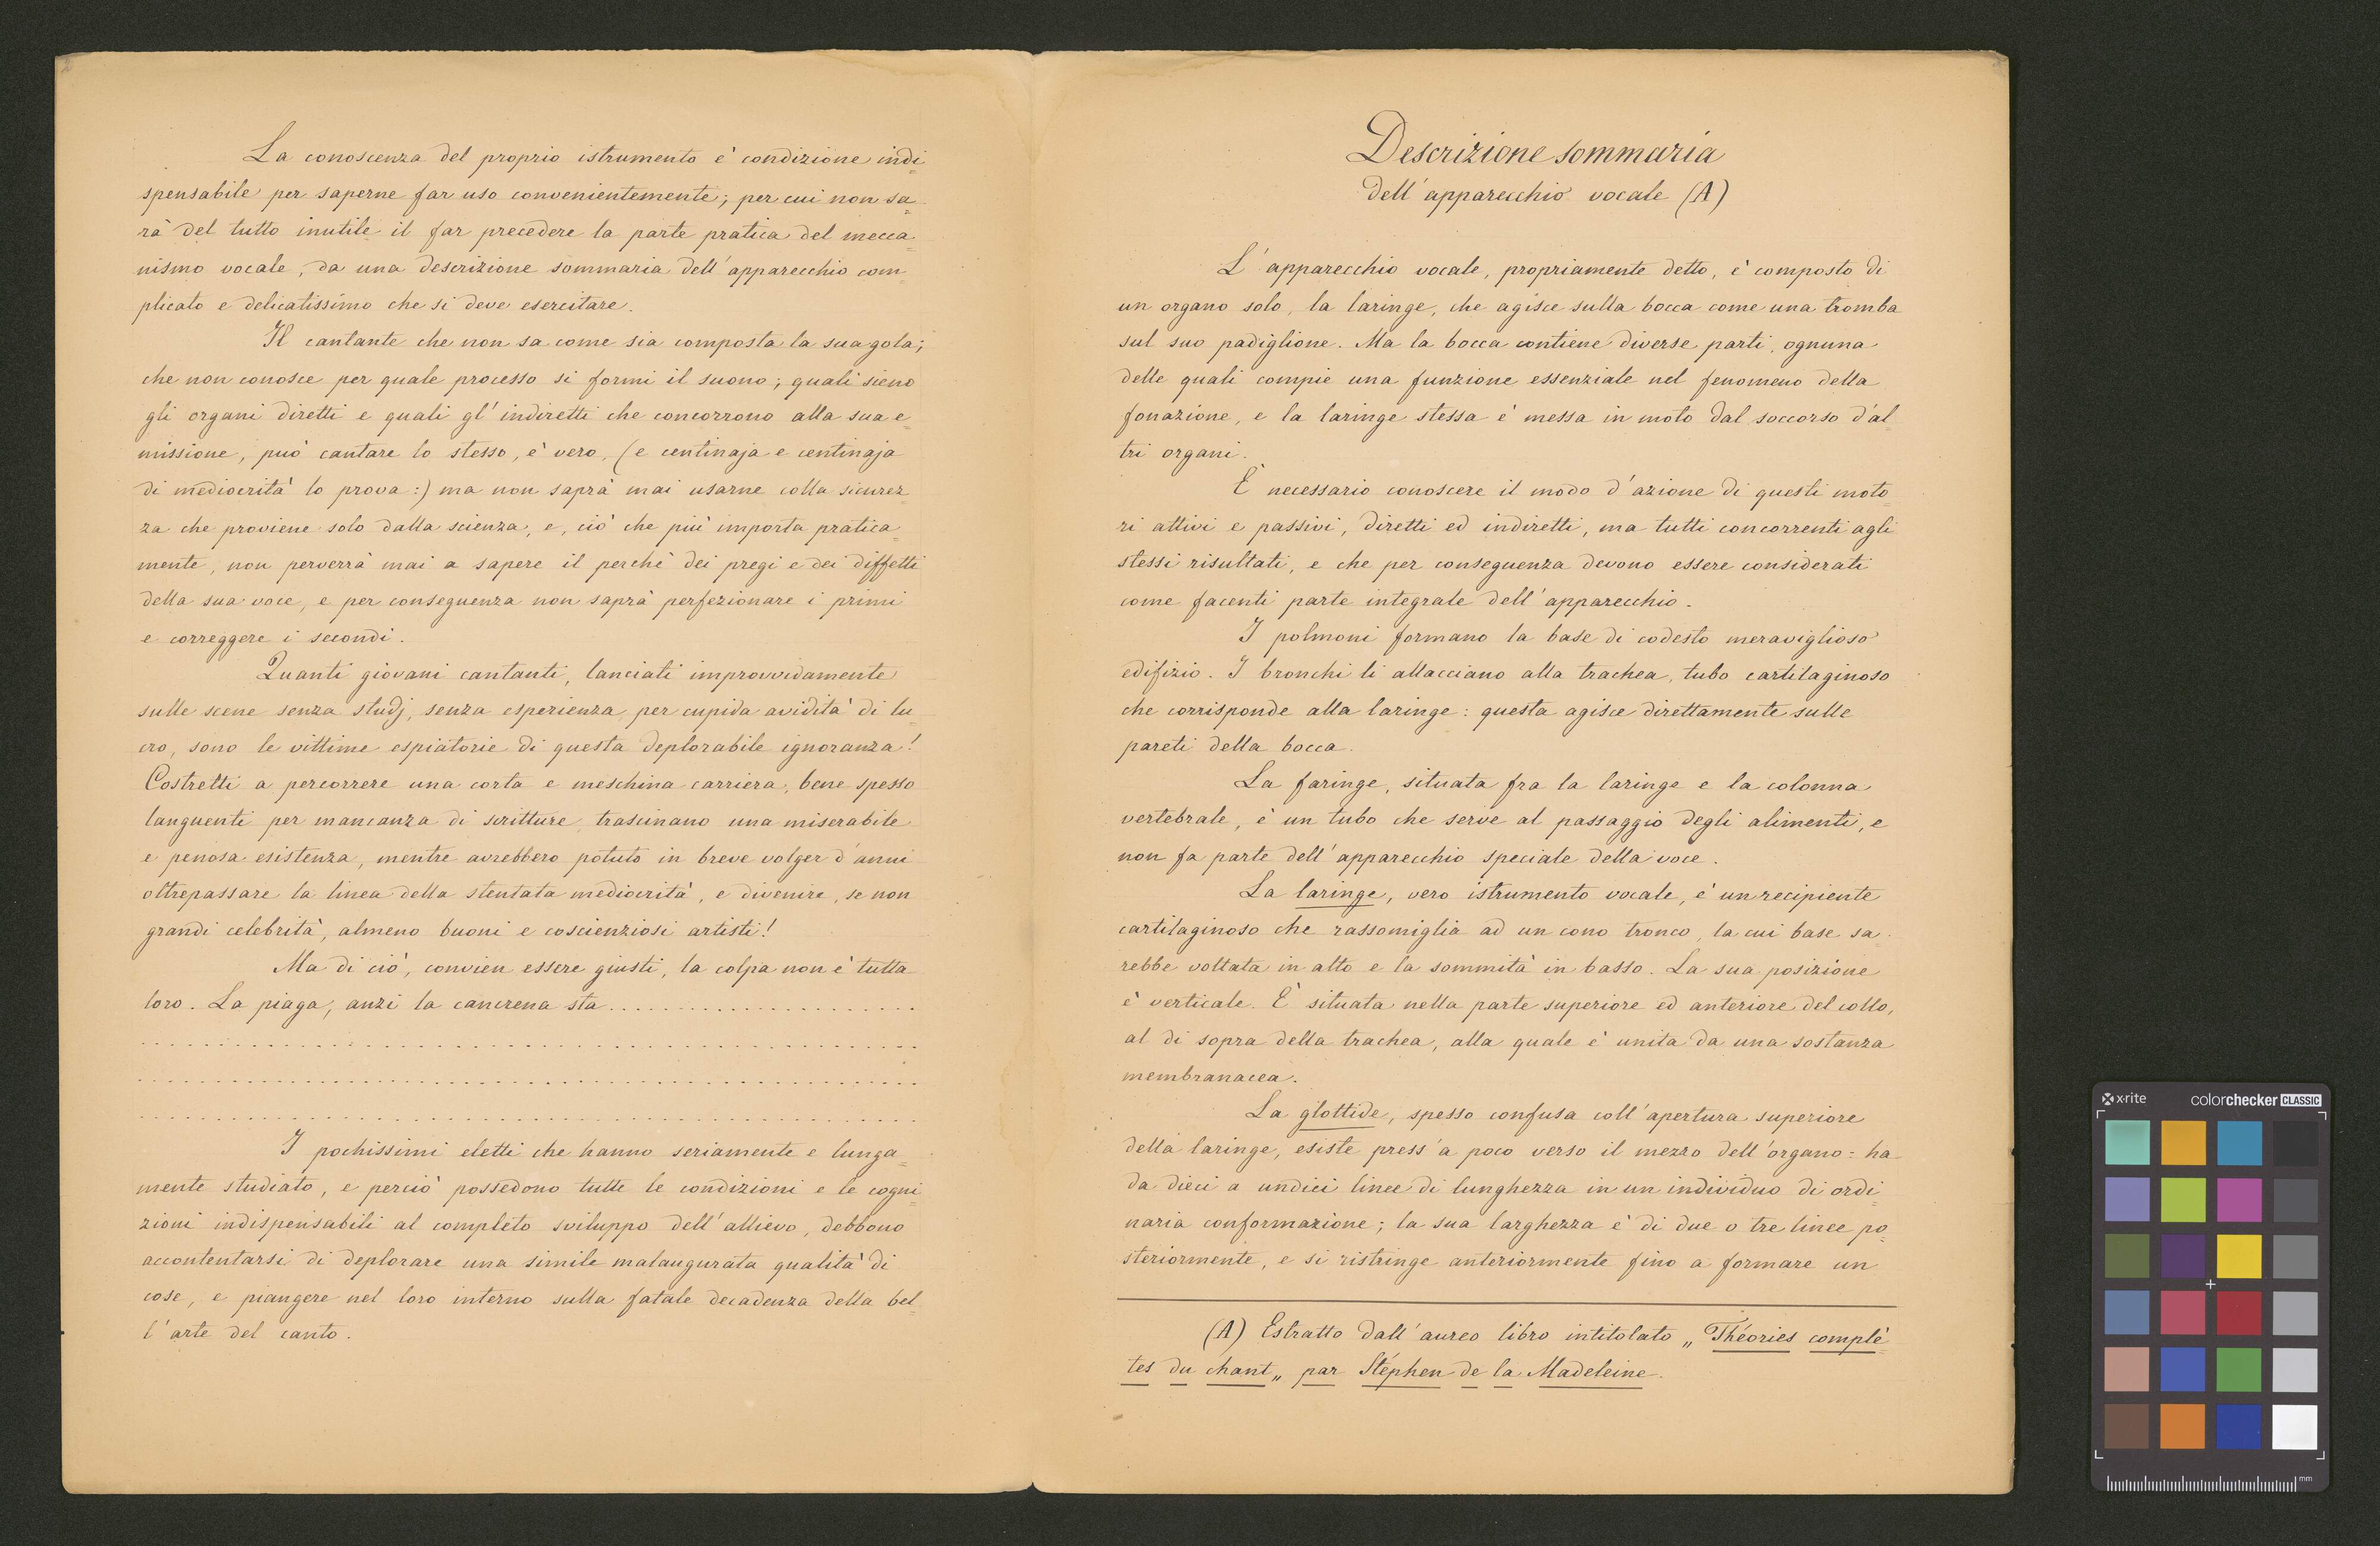 La conoscenza del proprio istrumento è condizione indi=
spensabile per saperne far uso convenientemente; per cui non sa=
rà del tutto inutile il far precedere la parte pratica del mecca=
nismo vocale, da una descrizione sommaria dell'apparecchio com=
plicato e delicatissimo che si deve esercitare.
Il cantante che non sa come sia composta la sua gola;
che non conosce per quale processo si formi il suono; quali sieno
gli organi diretti e quali gl'indiretti che concorrono alla sua e=
missione, può cantare lo stesso, è vero, (e centinaja e centinaja
di mediocrità lo prova:) ma non saprà mai usarne colla sicurez
za che proviene solo dalla scienza, e, ciò che più importa pratica=
mente, non perverrà mai a sapere il perchè dei pregi e dei diffetti
della sua voce, e per conseguenza non saprà perfezionare i primi
e correggere i secondi.
Quanti giovani cantanti, lanciati improvvidamente
sulle scene senza studj, senza esperienza, per cupida avidità di lu=
cro, sono le vittime espiatorie di questa deplorabile ignoranza!
Costretti a percorrere una corta e meschina carriera, bene spesso
languenti per mancanza di scritture, trascinano una miserabile
e penosa esistenza, mentre avrebbero potuto in breve volger d'anni
oltrepassare la linea della stentata mediocrità, e divenire, se non
grandi celebrità, almeno buoni e coscienziosi artisti!
Ma di ciò, convien essere giusti, la colpa non è tutta
loro. La piaga, anzi la cancrena sta . . . . . . . . . . . . . . . . . . . . .
. . . . . . . . . . . . . . . . . . . . . . . . . . . . . . . . . . . . . . . .
. . . . . . . . . . . . . . . . . . . . . . . . . . . . . . . . . . . . . . . .
. . . . . . . . . . . . . . . . . . . . . . . . . . . . . . . . . . . . . . . .
I pochissimi eletti che hanno seriamente e lunga=
mente studiato, e perciò possedono tutte le condizioni e le cogni=
zioni indispensabili al completo sviluppo dell'allievo, debbono
accontentarsi di deplorare una simile malaugurata qualità di
cose, e piangere nel loro interno sulla fatale decadenza della bel=
l'arte del canto.
Descrizione sommaria
dell'apparecchio vocale (A)
L'apparecchio vocale, propriamente detto, è composto di
un organo solo, la laringe, che agisce sulla bocca come una tromba
sul suo padiglione. Ma la bocca contiene diverse parti, ognuna
delle quali compie una funzione essenziale nel fenomeno della
fonazione, e la laringe stessa è messa in moto dal soccorso d'al=
tri organi.
È necessario conoscere il modo d'azione di questi moto=
ri attivi e passivi, diretti ed indiretti, ma tutti concorrenti agli
stessi risultati, e che per conseguenza devono essere considerati
come facenti parte integrale dell'apparecchio.
I polmoni formano la base di codesto meraviglioso
edifizio. I bronchi li allacciano alla trachea, tubo cartilaginoso
che corrisponde alla laringe: questa agisce direttamente sulle
pareti della bocca.
La faringe, situata fra la laringe e la colonna
vertebrale, è un tubo che serve al passaggio degli alimenti, e
non fa parte dell'apparecchio speciale della voce.
La laringe, vero istrumento vocale, è un recipiente
cartilaginoso che rassomiglia ad un cono tronco, la cui base sa=
rebbe voltata in alto e la sommità in basso. La sua posizione
è verticale. È situata nella parte superiore ed anteriore del collo,
al di sopra della trachea, alla quale è unita da una sostanza
membranacea.
La glottide, spesso confusa coll'apertura superiore
della laringe, esiste press'a poco verso il mezzo dell'organo: ha
da dieci a undici linee di lunghezza in un individuo di ordi=
naria conformazione; la sua larghezza è di due o tre linee po=
steriormente, e si ristringe anteriormente fino a formare un
(A) Estratto dall'aureo libro intitolato „Théories complè=
tes du chant„ par Stéphen de la Madeleine.
x-rite colorchecker CLASSIC
mm